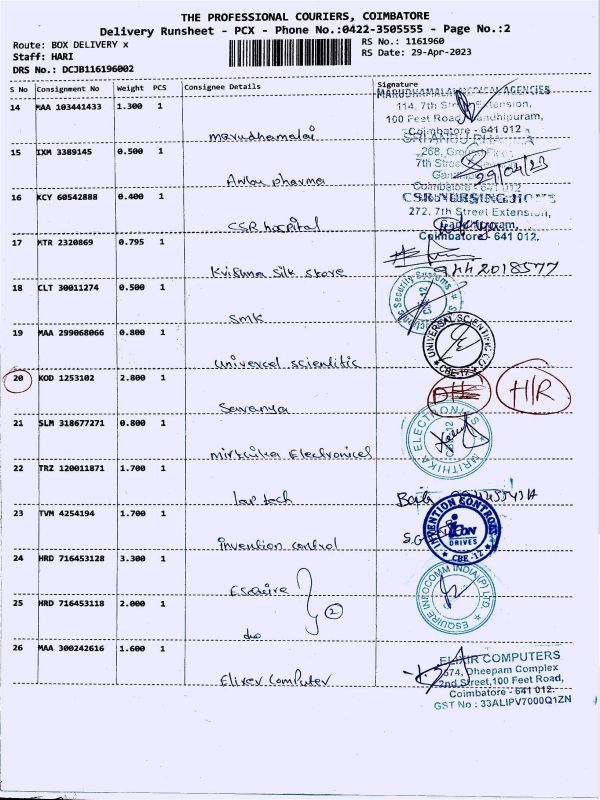 THE PROFESSIONAL COURIERS, COIMBATORE
Delivery Runsheet - PCX - Phone No.:0422-3505555 - Page No.:2
Route: BOX DELIVERY x RS No.: 1161960
Staff: HARI RS Date: 29-Apr-2023
DRS No.: DCJB116196002
S No Consignment No Weight PCS Consignee Details Signature
14 MAA 103441433 1.300 1 MARUDHAMALAI MEDICAL AGENCIES
114, 7th St Extension,
100 Feet Road, Gandhipuram,
marudhamalai Coimbatore - 641 012
15 IXM 3389145 0.500 1
268, Ground Floor
7th Street
Anbu pharma 29/04/23
Coimbatore - 641 012
16 KCY 60542888 0.400 1 CSR NURSING HOME
272, 7th Street Extension,
CSR hospital Gandhipuram,
Coimbatore - 641 012.
17 MTR 2320869 0.795 1
Krishna Silk store 9442018577
18 CLT 30011274 0.500 1 Security Systems CBE-12
SMK
19 MAA 299068066 0.800 1 UNIVERSAL SCIENTIFIC CO.
univercel scientific CBE-12
20 KOD 1253102 2.800 1 H/R
Saranya
21 SLM 318677271 0.800 1 MRITHIKA ELECTRONICS
CBE-12
mirthika Electronicel
22 TRZ 120011871 1.700 1
lap tech
23 TVM 4254194 1.700 1 INVENTION CONTROLS
iCON
DRIVES
invention control CBE-12
24 HRD 716453128 3.300 1
Esquire ESQUIRE INFOCOMM INDIA (P) LTD.
25 HRD 716453118 2.000 1 2
do
26 MAA 300242616 1.600 1 ELIXIR COMPUTERS
574, Dheepam Complex
2nd Street, 100 Feet Road,
Elixer Computer Coimbatore - 641 012.
GST No : 33ALIPV7000Q1ZN